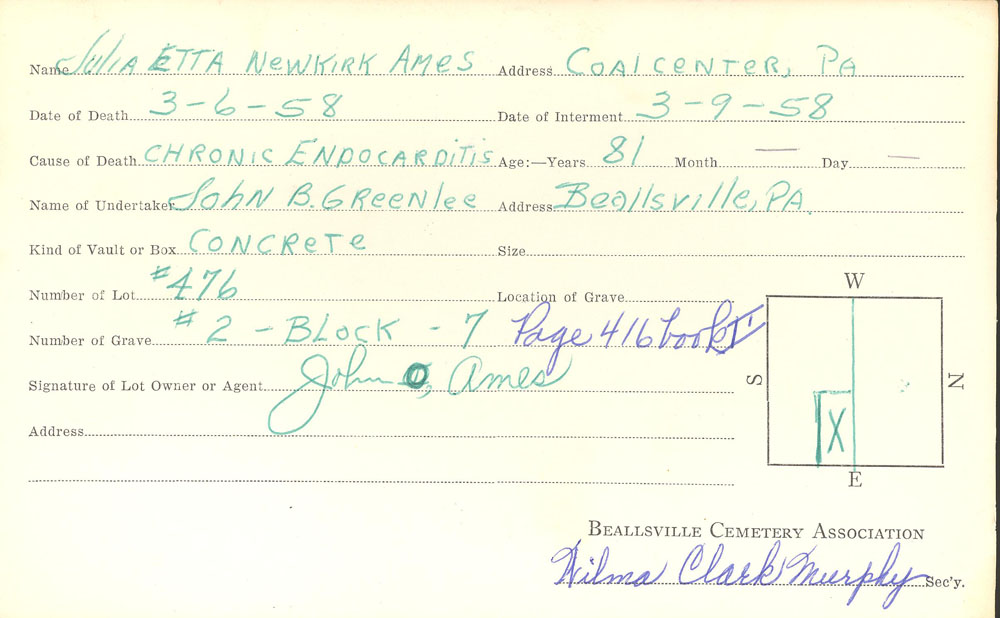 Name Julia Etta Newkirk Ames Address Coalcenter, PA
Date of Death 3-6-58 Date of Interment 3-9-58
Cause of Death Chronic Endocarditis Age:—Years 81 Month — Day —
Name of Undertaker John B. Greenlee Address Beallsville, PA.
Kind of Vault or Box Concrete Size
Number of Lot #476 Location of Grave
Number of Grave #2 - Block - 7 Page 416 book II
Signature of Lot Owner or Agent John O, Ames
Address
W
S
N
X
E
Beallsville Cemetery Association
Wilma Clark Murphy Sec'y.